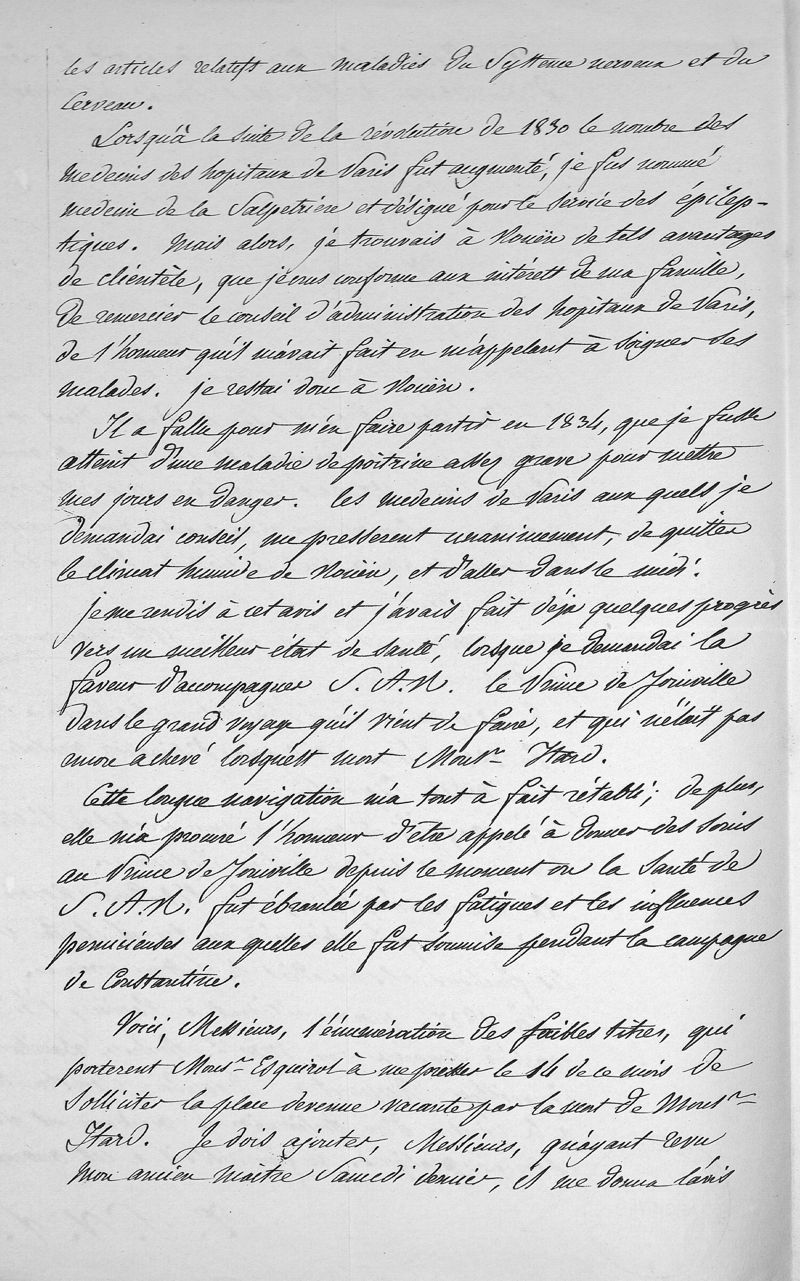 les articles relatifs aux maladies du Systême nerveux et du
Cerveau.
Lorsqu'à la suite de la révolution de 1830 le nombre des
medecins des hopitaux de Paris fut augmenté, je fus nommé
medecin de la Salpetrière et désigué pour le service des épilep-
tiques. Mais alors, je trouvais à Rouën de tels avantages
de clientèle, que je crus conforme aux intérêts de ma famille,
de remercier le conseil d'administration des hopitaux de Paris,
de l'honneur qu'il m'avait fait en m'appelant à soigner ses
malades. je restai donc à Rouën.
Il a fallu pour m'en faire partir en 1834, que je fusse
atteint d'une maladie de poitrine assez grave pour mettre
mes jours en danger. les medecins de Paris aux quels je
demandai conseil, me presserent unanimement, de quitter
le climat humide de Rouën, et d'aller dans le midi.
je me rendis à cet avis et j'avais fait déja quelques progrès
vers un meilleur état de santé, lorsque je demandai la
faveur d'accompagner S. A. R. le Prince de Joinville
dans le grand voyage qu'il vient de faire, et qui n'était pas
encore achevé lorsqu'est mort Monsr Itard.
Cette longue navigation m'a tout à fait rétabli; de plus,
elle m'a procuré l'honneur d'être appelé à donner des soins
au Prince de Joinville depuis le moment ou la Santé de
S. A. R. fut ébranlée par les fatigues et les influences
pernicieuses aux quelles elle fut soumise pendant la campagne
de Constantine.
Voici, Messieurs, l'énumération des faibles titres, qui
porterent Monsr Esquirol à me presser le 14 de ce mois de
solliciter la place devenue vacante par la mort de Monsr
Itard. Je dois ajouter, Messieurs, qu'ayant revu
Mon ancien maître Samedi dernier, il me donna l'avis